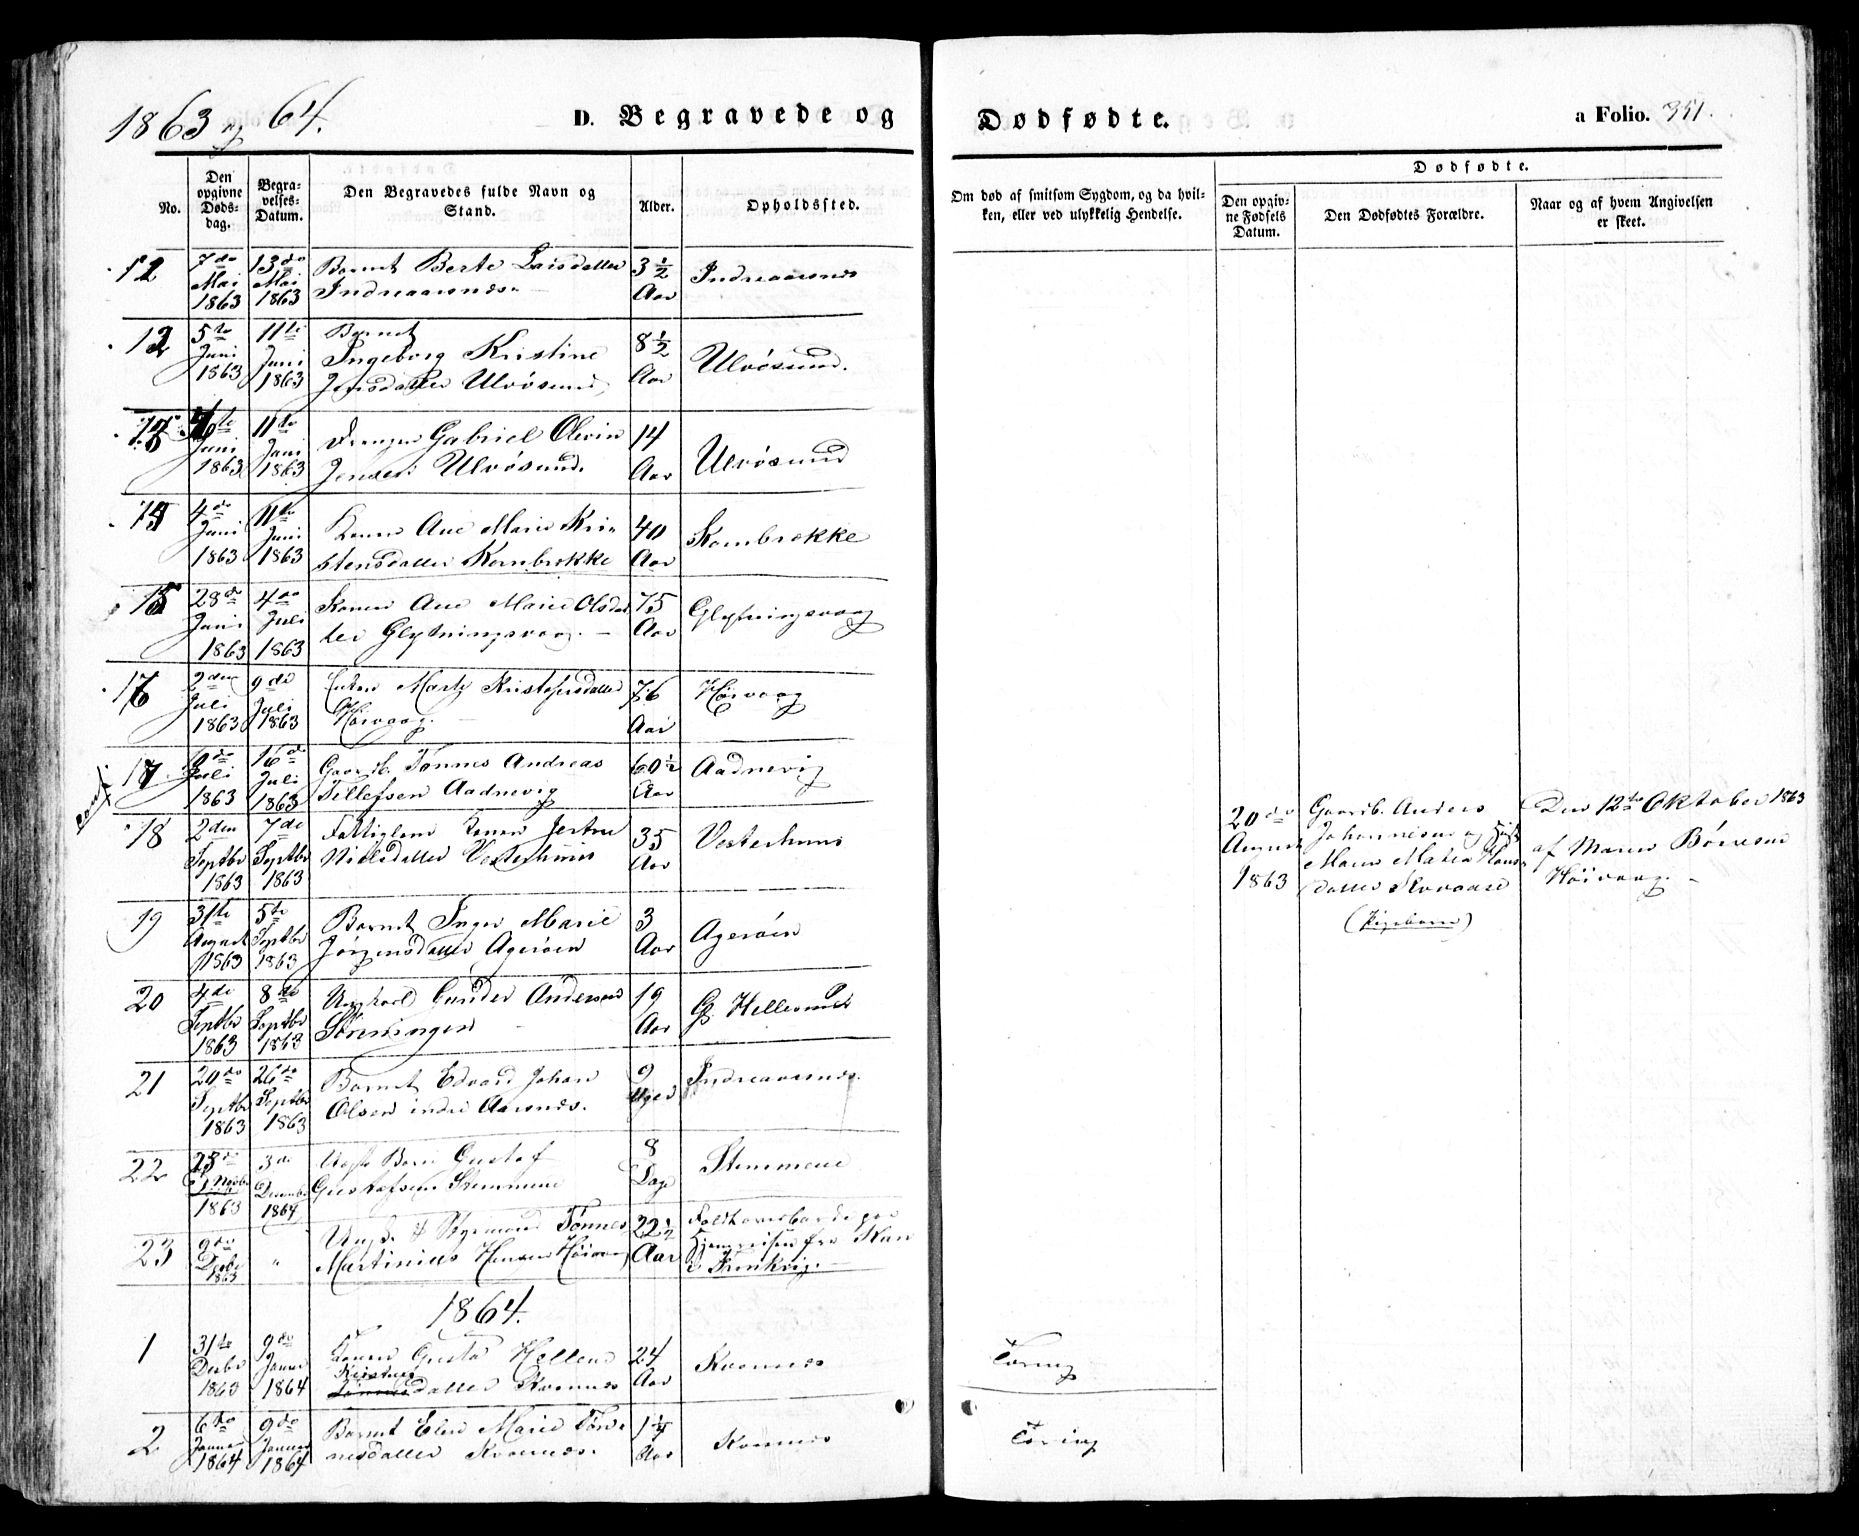 1863 og 64.
D. Begravede og Dødfødte.
a Folio. 351.
No.
Den opgivne Døds-dag.
Begra-velses-Datum.
Den Begravedes fulde Navn og Stand.
Alder.
Opholdsted.
Om død af smitsom Sygdom, og da hvil-
ken, eller ved ulykkelig Hendelse.
Dødfødte.
Den opgiv-
ne Fødsels
Datum.
Den Dødfødtes Forældre.
Naar og af hvem Angivelsen
er skeet.
12
7de Mai 1863
13de Mai 1863
Barnet Berte Larsdatter
Indreaarsnes
3 1/2 Aar
Indreaarsnes
5te Juni 1863
11te Juni 1863
Barnet
Ingeborg Kristine
Jensdatter Ulvøsund
8 1/2 Aar
Ulvøsund.
Juni 1863
11te Juni 1863
Drengen Gabriel Olevin
Jensen Ulvøsund.
14 Aar
Ulvøsund
4de Juni 1863
11te Juni 1863
Konen Ane Marie Kri-
stensdatter Kornbrække
40 Aar
Kornbrække
15
28de Juni 1863
4de Juli 1863
Konen Ane Marie Olsdat
ter Glytningsvaag.
75 Aar
Glytningsvaag
2den Juli 1863
9de Juli 1863
Enken Marte Kristofersdatter
Høivaag.
76 Aar
Høivaag
17
Juli 1863
16de Juli 1863
Gaardb. Tønnes Andreas
Tellefsen Aadnevig
60 1/2 Aar
Aadnevig
18
2den Septbr 1863
7de Septbr 1863
Fattiglem Konen Jertru
Nielsdatter Vesterhuus
35 Aar
Vesterhuus
20de August 1863
Gaardb. Anders
Johannesen og
Maren Matea Hans-
datter Kvaase
(Pigebarn)
Den 12te Oktober 1863
af Maren Børresen
Høivaag.
19
31te August 1863
5te Septbr 1863
Barnet Inger Marie
Jørgensdatter Agerøen
3 Aar
Agerøen
20
4de Septbr 1863
8de Septbr 1863
Ungkarl Gunder Andersen
19 Aar
G. Hellesund
21
20de Septbr 1863
26de Septbr 1863
Barnet Edvard Johan
Olsen indre Aarsnes.
9 Uger
Indreaarsnes.
22
23de Novbr 1863
3de Decembr 1864
Barn Gustaf
Gustafsen Stemmene
8 Dage
Stemmene
23
9de Decbr 1863
"
Ungk. & Styrmand Tønnes
Martinius Hansen Høivaag
22 1/2 Aar
1864.
1
31te Decbr 1863
9de Januar 1864
Konen Gusta Hellene
Kristens
datter Kvannes
24 Aar
Kvannes
Tæring
2
6te Januar 1864
9de Januar 1864
Barnet Elen Marie Tøn-
nesdatter Kvannes.
1 1/4 Aar
Kvannes
Tæring